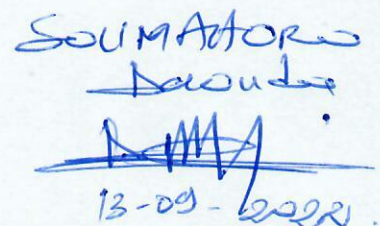 SOUMAHORO
Daouda
13-09-2022